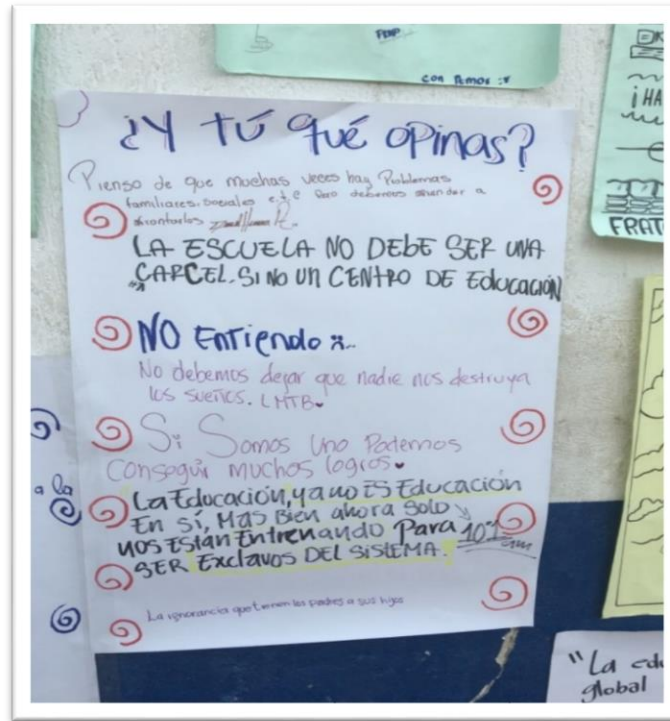 con Amor :*
¿Y tú qué opinas?
Pienso de que muchas veces hay Problemas
familiares. sociales e.t.c Pero debemos aprender a
afrontarlos
LA ESCUELA NO DEBE SER UNA
"CARCEL. SI NO UN CENTRO DE Educación
NO Entiendo
No debemos dejar que nadie nos destruya
los sueños. LMTB
Si Somos Uno Podemos
Conseguir muchos logros.
La Educación, ya no ES Educación
En sí, MAS Bien ahora Solo
nos Están Entrenando Para
SER Exclavos DEL SISTEMA.
La ignorancia que tienen los padres a sus hijos
¡HA
FRAT
"La edu
global